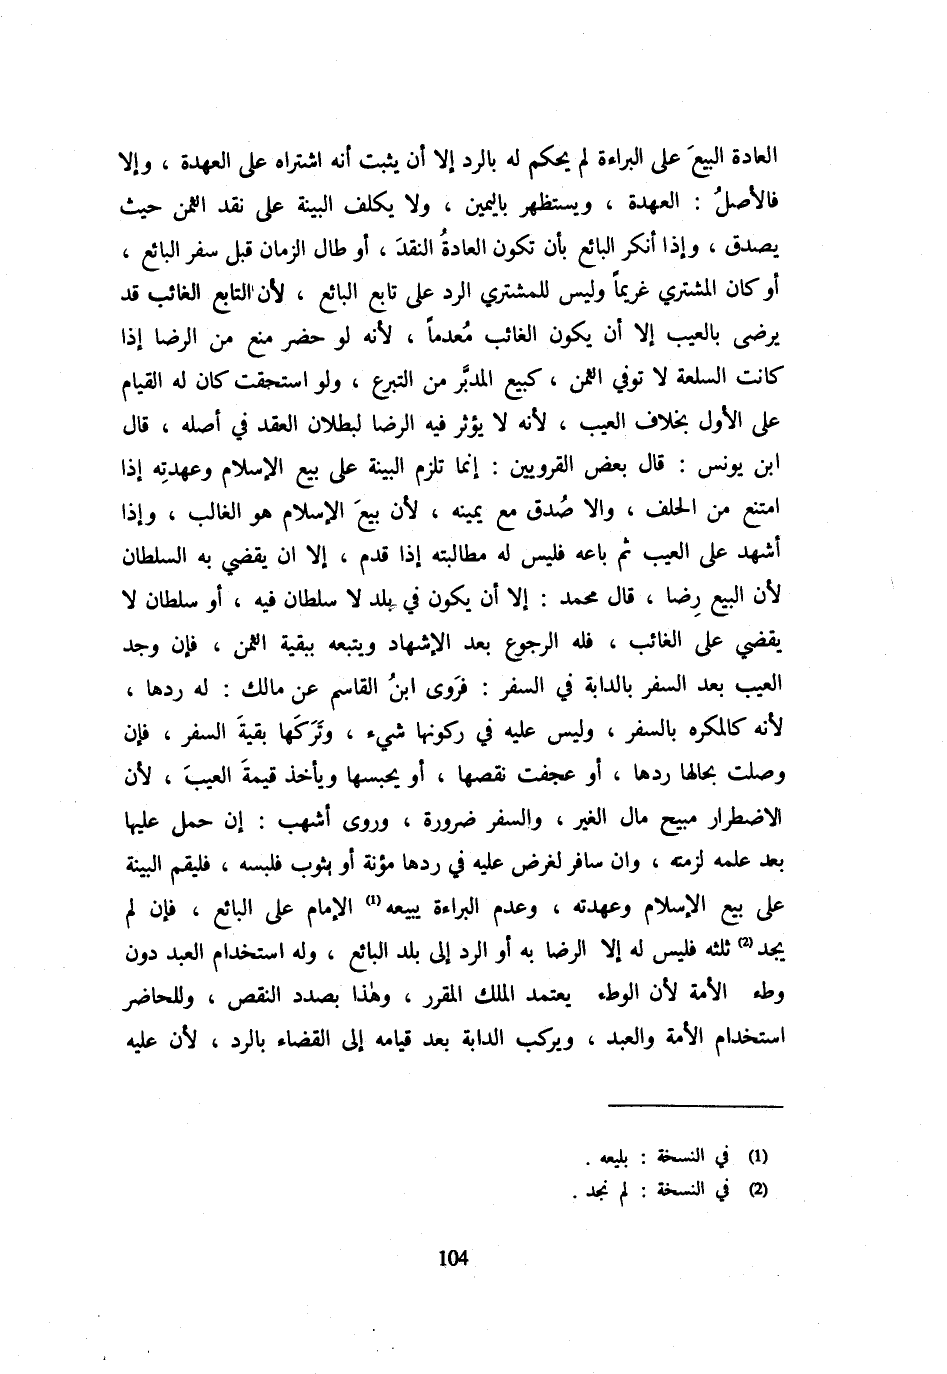 العادة البيعَ على البراءة لم يحكم له بالرد إلا أن يثبت أنه اشتراه على العهدة ، وإلا
فالأصلُ : العهدة ، ويستظهر باليمين ، ولا يكلف البينة على نقد الثمن حيث
يصدق ، وإذا أنكر البائع بأن تكون العادةُ النقدَ ، أو طال الزمان قبل سفر البائع ،
أو كان المشتري غريماً وليس للمشتري الرد على تابع البائع ، لأن التابع الغائب قد
يرضى بالعيب إلا أن يكون الغائب مُعدماً ، لأنه لو حضر منع من الرضا إذا
كانت السلعة لا توفي الثمن ، كبيع المدبَّر من التبرع ، ولو استحقت كان له القيام
على الأول بخلاف العيب ، لأنه لا يؤثر فيه الرضا لبطلان العقد في أصله ، قال
ابن يونس : قال بعض القرويين : إنما تلزم البينة على بيع الإسلام وعهدتِه إذا
امتنع من الحلف ، والا صُدق مع يمينه ، لأن بيعَ الإسلام هو الغالب ، وإذا
أشهد على العيب ثم باعه فليس له مطالبته إذا قدم ، إلا ان يقضي به السلطان
لأن البيع رِضا ، قال محمد : إلا أن يكون في بلد لا سلطان فيه ، أو سلطان لا
يقضي على الغائب ، فله الرجوع بعد الإشهاد ويتبعه ببقية الثمن ، فإن وجد
العيب بعد السفر بالدابة في السفر : فرَوى ابنُ القاسم عن مالك : له ردها ،
لأنه كالمكره بالسفر ، وليس عليه في ركونها شيء ، وتَرَكَها بقيةَ السفر ، فإن
وصلت بحالها ردها ، أو عجفت نقصها ، أو يحبسها ويأخذ قيمةَ العيبَ ، لأن
الاضطرار مبيح مال الغير ، والسفر ضرورة ، وروى أشهب : إن حمل عليها
بعد علمه لزمته ، وان سافر لغرض عليه في ردها مؤنة أو بثوب فلبسه ، فليقم البينة
على بيع الإسلام وعهدته ، وعدم البراءة يبيعه (1) الإمام على البائع ، فإن لم
يجد (2) ثلثه فليس له إلا الرضا به أو الرد إلى بلد البائع ، وله استخدام العبد دون
وطء الأمة لأن الوطء يعتمد الملك المقرر ، وهٰذا بصدد النقص ، وللحاضر
استخدام الأمة والعبد ، ويركب الدابة بعد قيامه إلى القضاء بالرد ، لأن عليه
(1) في النسخة : بليعه .
(2) في النسخة : لم نجد .
104